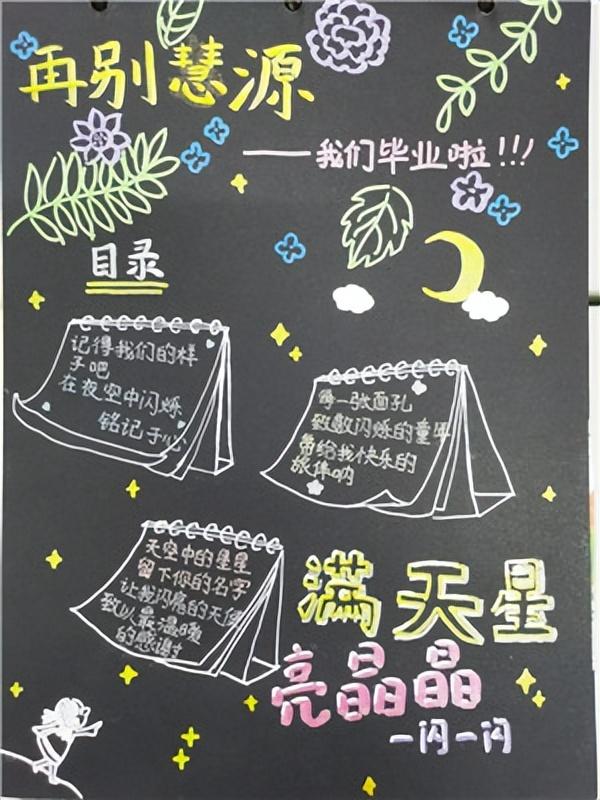 再别慧源
——我们毕业啦!!!
目录
记得我们的样
子吧
在夜空中闪烁
铭记于心
每一张面孔
致敬闪烁的童年
带给我快乐的
旅伴呐
天空中的星星
留下你的名字
让我闪亮的天使
致以最温暖
的感谢寸
满天星
亮晶晶
一闪一闪